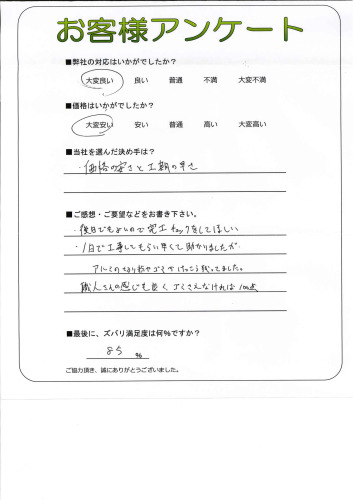 お客様アンケート
■弊社の対応はいかがでしたか?
大変良い 良い 普通 不満 大変不満
■価格はいかがでしたか?
大変安い 安い 普通 高い 大変高い
■当社を選んだ決め手は?
・価格の安さと工期の早さ
■ご感想・ご要望などをお書き下さい。
・後日でもよいので完工チェックをしてほしい
・1日で工事してもらい早くて助かりましたが
アルミの切り粉やゴミがけっこう残ってました。
職人さんの感じも良くゴミさえなければ100点
■最後に、ズバリ満足度は何%ですか?
85 %
ご協力頂き、誠にありがとうございました。